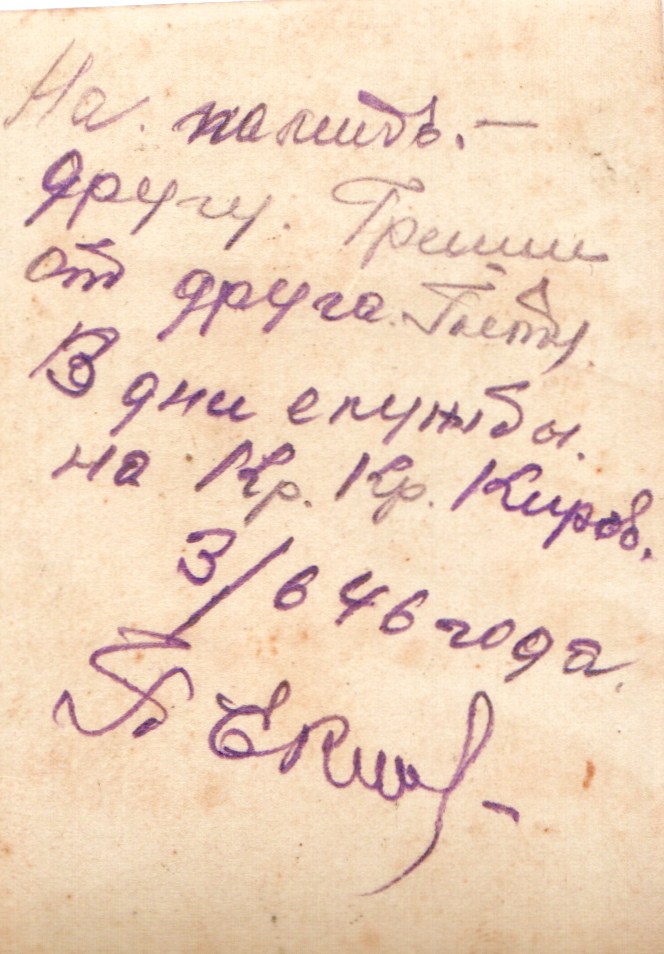 На память. —
другу. Гриши
от друга. Пети.
В дни службы.
на Кр. Кр. Киров.
3/6 46 года.